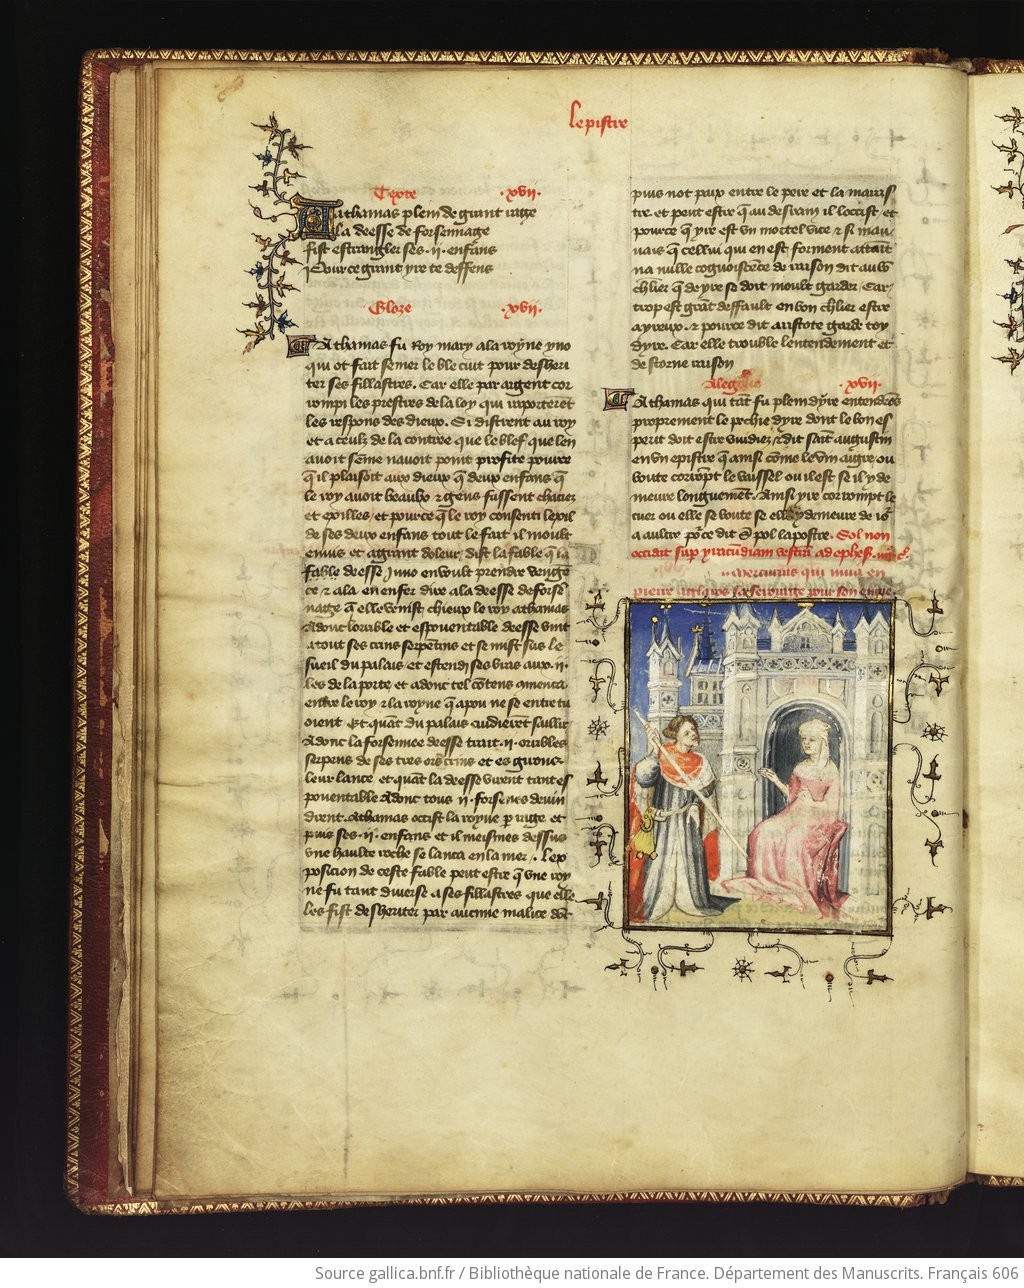 Lepistre
Texte .xvii.
Athamas plein de grant rage
La deesse de forsennage
Fist estrangler ses .ii. enfans
Pour ce grant yre te deffens
Gloze .xvii.
Athamas fu Roy mary a la royne yno
qui ot fait semer le ble cuit pour desheri
ter ses fillastres. Car elle par argent cor
rompi les prestres de la loy qui raporterēt
les respons des dieux. Si distrent au roy
et a ceulz de la contree que le blef que len
auoit seme nauoit point proffité pource
q̄ il plaisoit aux dieux q̄ deux enfans q̄
le roy auoit beaulx et gens fussent chaciez
et exilles, et pource q̄ le roy consenti lexil
de ses deux enfans tout le fait il moult
enuis et a grant doleur, dist la fable q̄ la
fable deesse Juno en voult prendre vengē
ce et ala en enfer dire a la deesse de forse
nage q̄ elle venist chieux le roy athamas
Adonc lorrible et espouentable deesse vint
a tout ses crins serpētins et se mist sus le
sueil du palais et estendi ses bras aux .ii.
les de la porte et adonc tel cōtens
entre le roy et la royne q̄ a pou ne se entretu
oient Et quāt du palais cuidierēt saillir
Adonc la forsennee deesse tirait .ii. oribles
serpens de ses tres ors crins et es girons
leur lance et quāt la deesse virent tant es
pouentable Adonc tous .ii. forsenes deuin
drent. Athamas occist la royne p rage et
puis ses .ii. enfans et il meismes dessus
vne haulte roche se lanca en la mer. Lex
posicion de ceste fable peut estre q̄ vne roy
ne fu tant diuerse a ses fillastres que elle
les fist desheriter par aucune malice dōt
puis not paix entre le pere et la marras
tre. et peut estre q̄ au derrain il loccist et
pource q̄ yre est vn mortel vice et si mau
uais q̄ cellui qui en est forment attaīt
na nulle cognoiscēce de raison dit au bō
chlier q̄ de yre se doit moult garder Car
trop est grāt deffault en bon chlier estre
ayreux. et pource dit aristote garde toy
dyre. Car elle trouble lentendement et
destorne raison
Alegorie .xvii.
Athamas qui tāt fu plein dyre entendōs
proprement le pechie dyre dont le bon es
perit doit estre vuidiez, et dit saīt augustin
en vn epistre q̄ ainsi cōme le vin aigre ou
boute corrōpt le vaissel ou il est se il y de
meure longuemēt. Ainsi yre corrompt le
cuer ou elle se boute se elle y demeure de io
a aultre po ce dit S pol lapostre. Sol non
occidat sup yracūdiam vestrā ad ephes. iiii c.
mercurius qui mua en
pierre